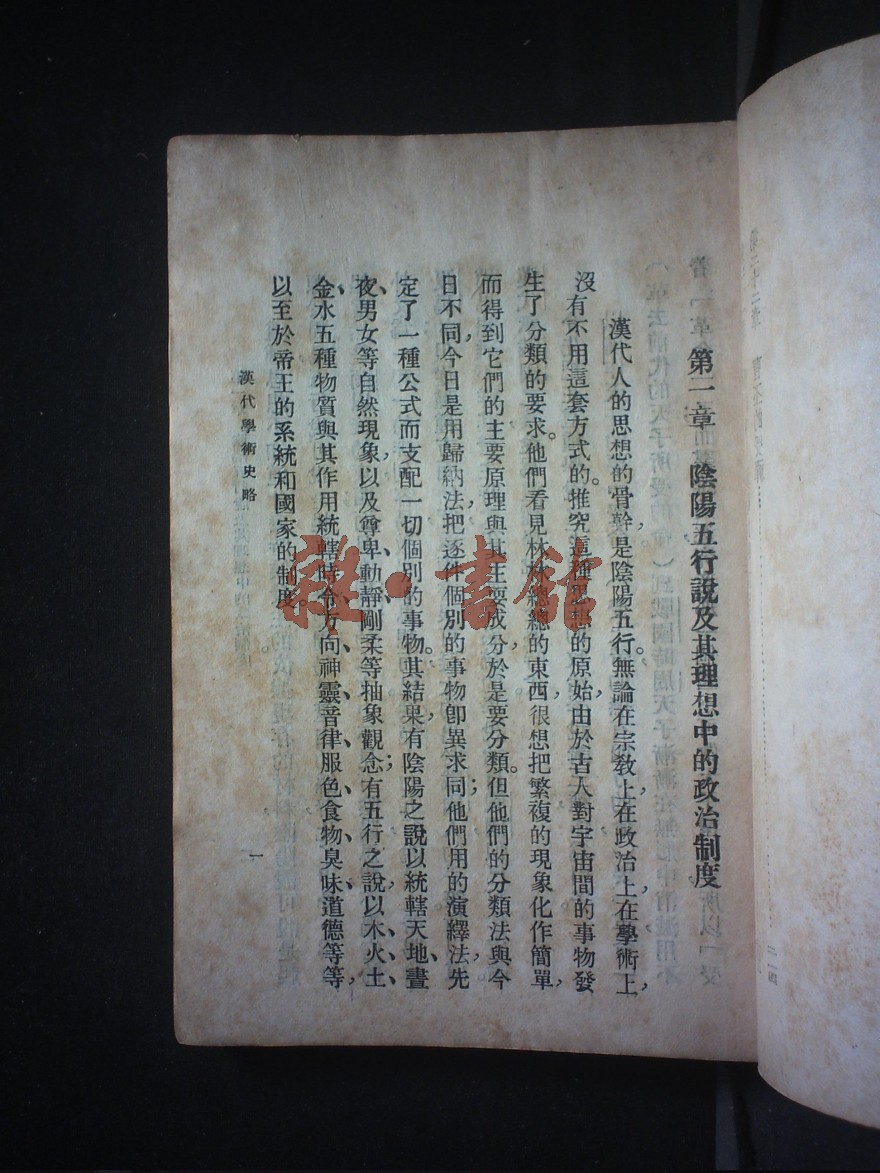 第一章 陰陽五行說及其理想中的政治制度
漢代人的思想的骨幹，是陰陽五行。無論在宗教上，在政治上，在學術上，
沒有不用這套方式的。推究這種思想的原始，由於古人對宇宙間的事物發
生了分類的要求。他們看見林林總總的東西，很想把繁複的現象化作簡單，
而得到它們的主要原理與其主要成分，於是要分類。但他們的分類法與今
日不同，今日是用歸納法，把逐件個別的事物即異求同；他們用的演繹法，先
定了一種公式而支配一切個別的事物。其結果，有陰陽之說以統轄天地、晝
夜、男女等自然現象，以及尊卑、動靜、剛柔等抽象觀念；有五行之說，以木、火、土、
金、水五種物質與其作用統轄時令、方向、神靈、音律、服色、食物、臭味、道德等等，
以至於帝王的系統和國家的制度。
漢代學術史略
一
雜·書館